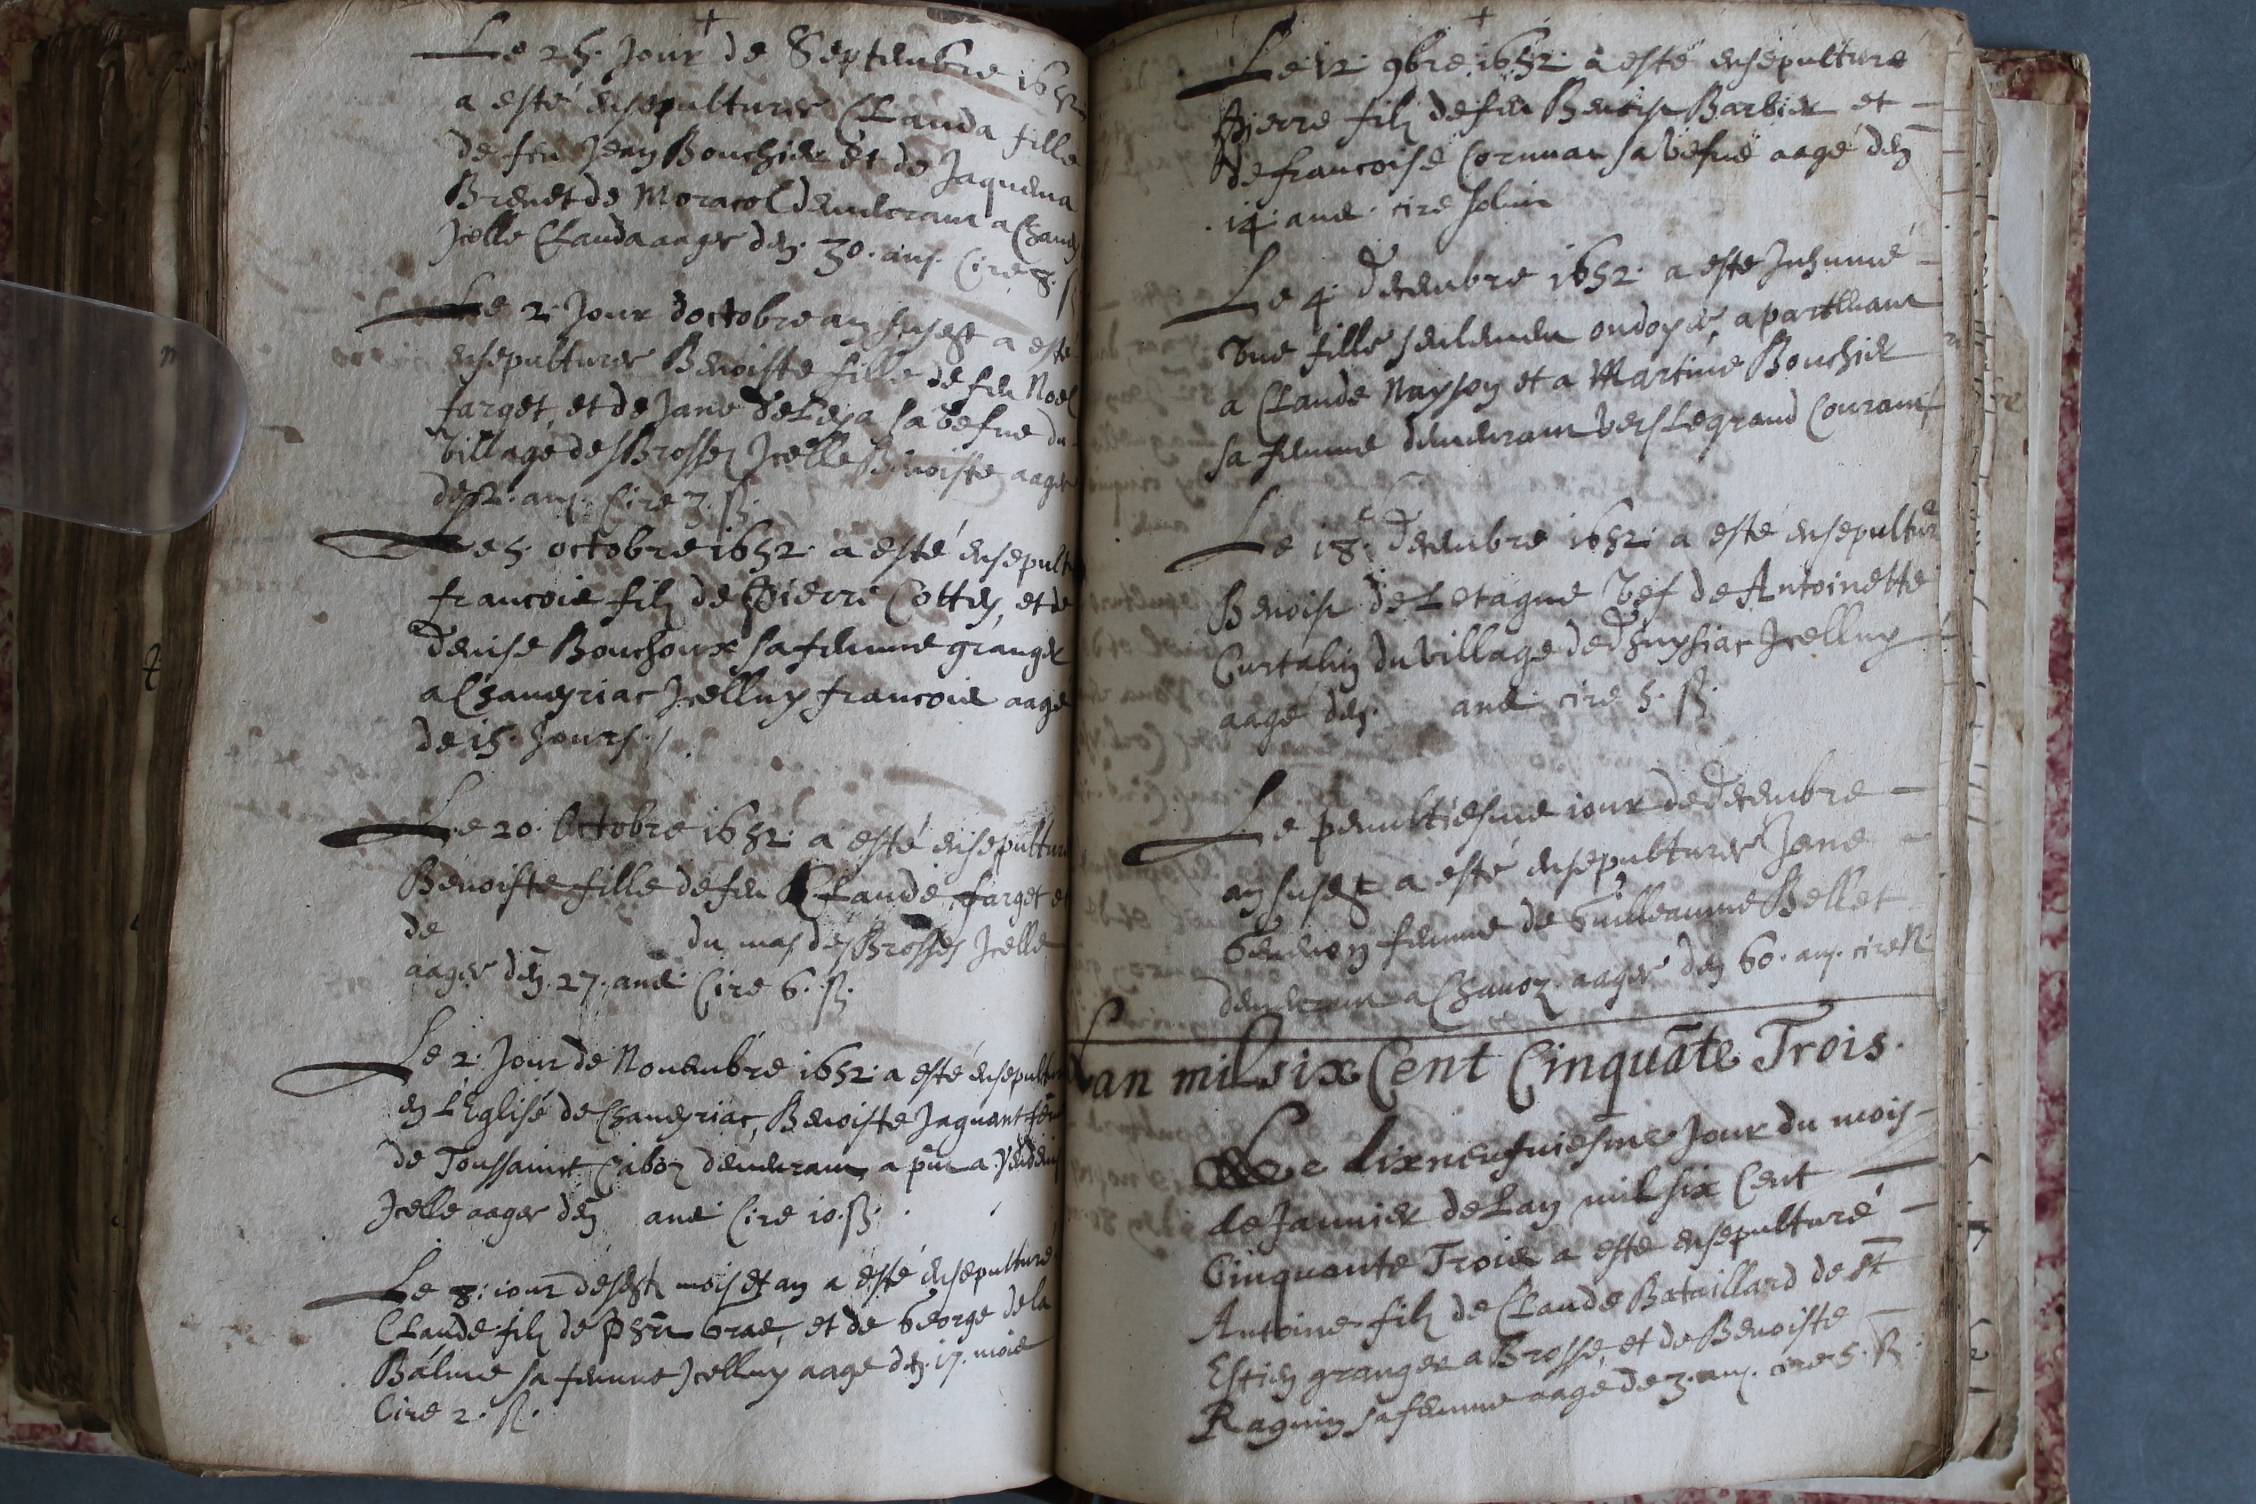 Le 25. Jour de Septembre 1652
a esté ensepulturee Clauda fille
de feu Jean Bouchier et de Jaquema
Brevet de Moracol demeurant a
Icelle Clauda aagee den. 30. ans. Cire 8. s
Le 2. Jour doctobre an susdt a esté
ensepulturee Benoiste fille de feu Noel
farget, et de Jane sa vefue du
Village des Brosses Icelle Benoiste aagee
ans. Cire 3. s.
Le 5. octobre 1652. a esté ensepult
francois filz de Pierre Cotten, et de
Denise Bouchoux sa femme granger
a Chaneyriac Icelluy francois aagé
de 15. Jours.
Le 20. Octobre 1652. a esté ensepulturee
Benoiste fille de feu Claude farget et
de du mas des Brosses Icelle
aagee den. 27. ans. Cire 6. s.
Le 2. Jour de Nouembre 1652. a esté ensepultu
en L'Eglise de Chaneyriac, Benoiste Jaguant fem
de Toussainct demeurant a pnt a
Icelle aagee den ans Cire 10. s.
Le 8. iour desdt mois et an a esté ensepulturé
Claude filz de Gras, et de George de la
Balme sa femme Icelluy aagé den. 17. mois
Cire 2. s.
Le 12. 9bre 1652. a esté ensepulturé
Pierre filz de feu Benoist Barbier et
de francoise sa vefue aagé den
14. ans. cire
Le 4. Decembre 1652. a esté Inhumé
Vne fille seulement ondoyee, apartenant
a Claude Nayson et a Martine Bouchier
sa femme demeurant vers Le grand Courant
Le 18.e Decembre 1652. a esté ensepulturé
Benoist de Letagne Vef de Antoinette
Curtalin du village de Icelluy
aagé den. ans cire 5. s.
Le penultiesme iour de Decembre
an susdt a esté ensepulturee Jane
femme de Guilleaume Bellet
demeurant a Chanoz aagee den 60. ans. cire
Lan mil six Cent Cinquāte Trois.
Le dixneufuiesme Jour du mois
de Januier de Lan mil six Cent
Cinquante Trois a esté ensepulturé
Antoine filz de Claude Bataillard de st
Estien granger a Brosse, et de Benoiste
Raguin sa femme aagé de 3. ans. cire 5. s.